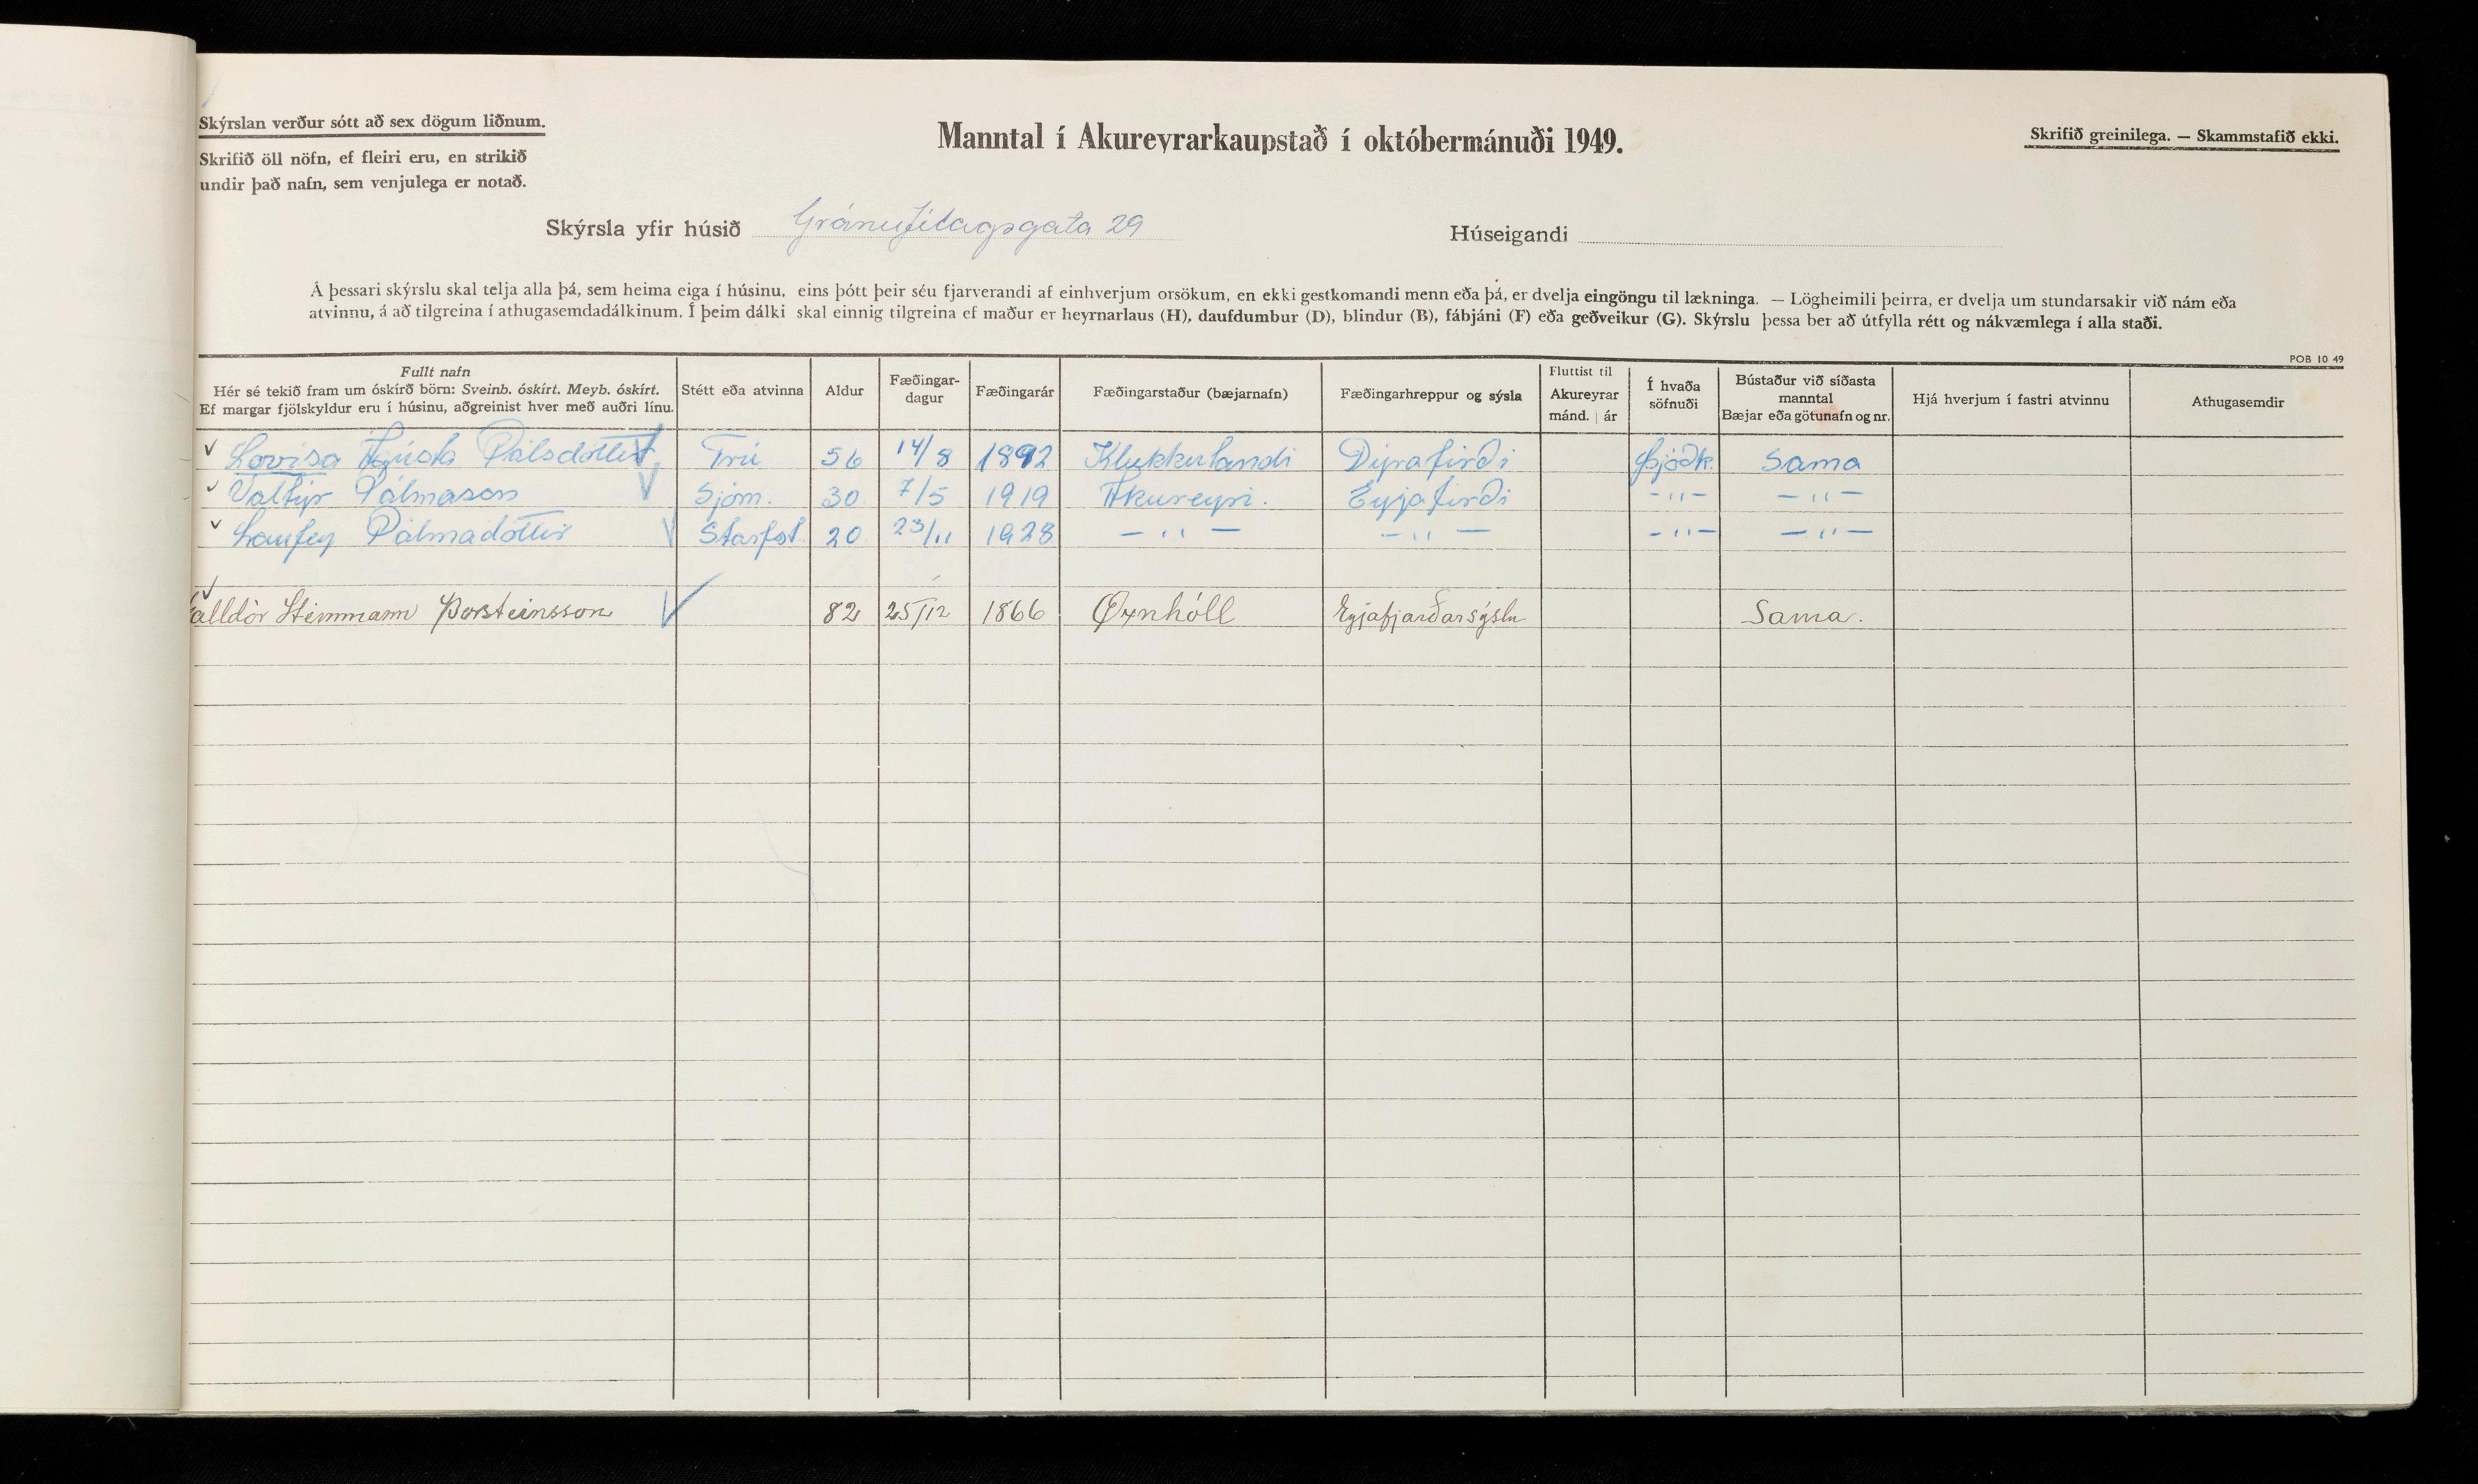 Skýrslan verður sótt að sex dögum liðnum.
Skrifið öll nöfn, ef fleiri eru, en strikið
undir það nafn, sem venjulega er notað.
Manntal í Akureyrarkaupstað í októbermánuði 1949.
Skrifið greinilega. — Skammstafið ekki.
Skýrsla yfir húsið Gránufélagsgata 29 Húseigandi
Á þessari skýrslu skal telja alla þá, sem heima eiga í húsinu, eins þótt þeir séu fjarverandi af einhverjum orsökum, en ekki gestkomandi menn eða þá, er dvelja eingöngu til lækninga. — Lögheimili þeirra, er dvelja um stundarsakir við nám eða
atvinnu, á að tilgreina í athugasemdadálkinum. Í þeim dálki skal einnig tilgreina ef maður er heyrnarlaus (H), daufdumbur (D), blindur (B), fábjáni (F) eða geðveikur (G). Skýrslu þessa ber að útfylla rétt og nákvæmlega í alla staði.
POB 10 49
Fullt nafn
Hér sé tekið fram um óskírð börn: Sveinb. óskírt. Meyb. óskírt.
Ef margar fjölskyldur eru í húsinu, aðgreinist hver með auðri línu.
Stétt eða atvinna
Aldur
Fæðingar-
dagur
Fæðingarár
Fæðingarstaður (bæjarnafn)
Fæðingarhreppur og sýsla
Fluttist til
Akureyrar
mánd. | ár
Í hvaða
söfnuði
Bústaður við síðasta
manntal
Bæjar eða götunafn og nr.
Hjá hverjum í fastri atvinnu
Athugasemdir
Lovísa Ágústa Pálsdóttir Frú 56 14/8 1892 Klukkulandi Dýrafirði Þjóðk. Sama
Valtýr Pálmason Sjóm. 30 7/5 1919 Akureyri. Eyjafirði -"- -"-
Laufey Pálmadóttir Starfst. 20 23/11 1928 -"- -"- -"- -"-
alldór Steinmann Þorsteinsson 82 25/12 1866 Öxnhóll Eyjafjarðarsýslu Sama.